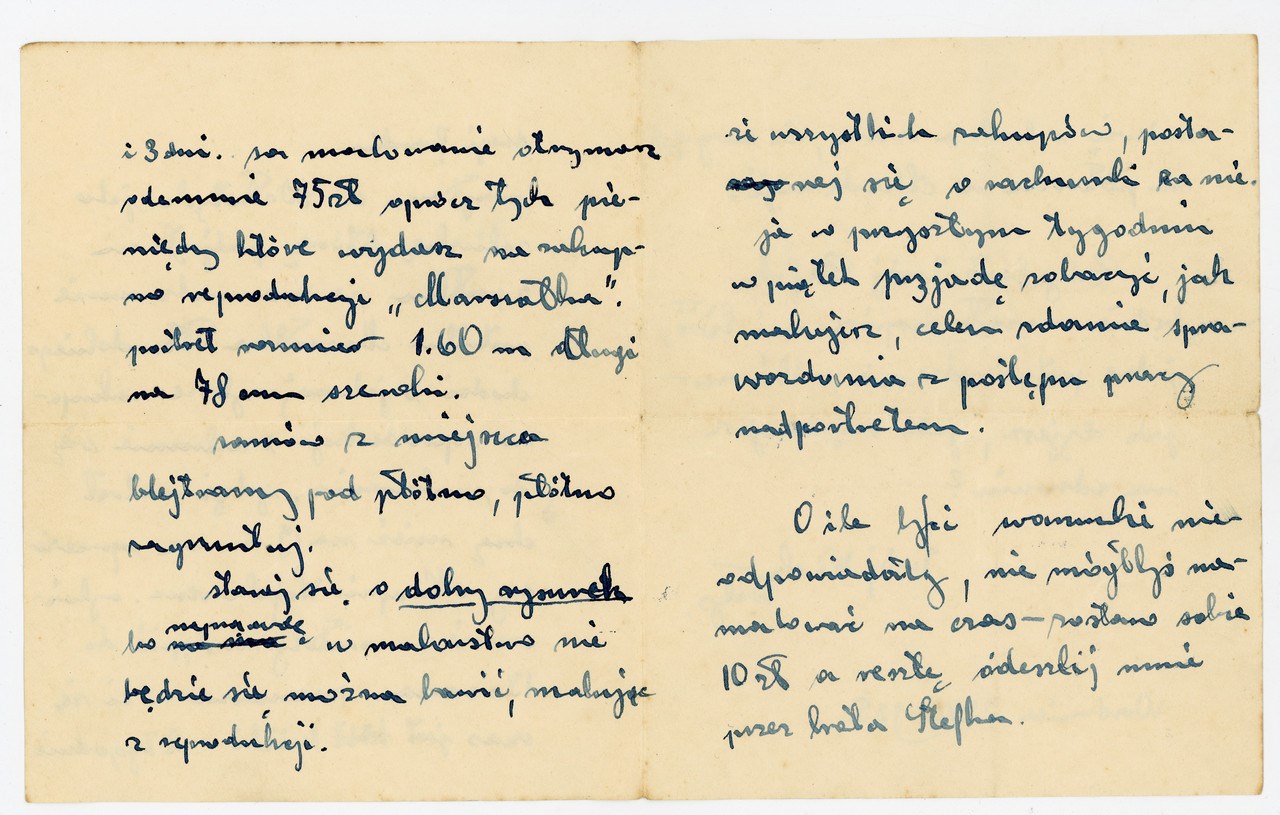 i 3 dni. za malowanie otrzymasz
odemnie 75 zł oprócz tych pie-
niędzy które wydasz na zakup-
no reprodukcji „Marszałka".
portret rozmiar 1.60 m długi
na 78 cm szeroki.
zamów z miejsca
blejtramy pod płótno, płótno
zagruntuj.
staraj się o dobry rysunek
bo naprawdę w malarstwo nie
będzie się można bawić, malując
z reprodukcji.
ze wszystkich zakupów, posta-
raj się o rachunki za nie.
ja w przyszłym tygodniu
w piątek przyjadę zobaczyć, jak
malujesz, celem zdania spra-
wozdania z postępu pracy
nad portretem.
O ile byś warunki nie
odpowiadały, nie mógłbyś na-
malować na czas – zostaw sobie
10 zł a resztę odeszlij mnie
przez brata Stefka.